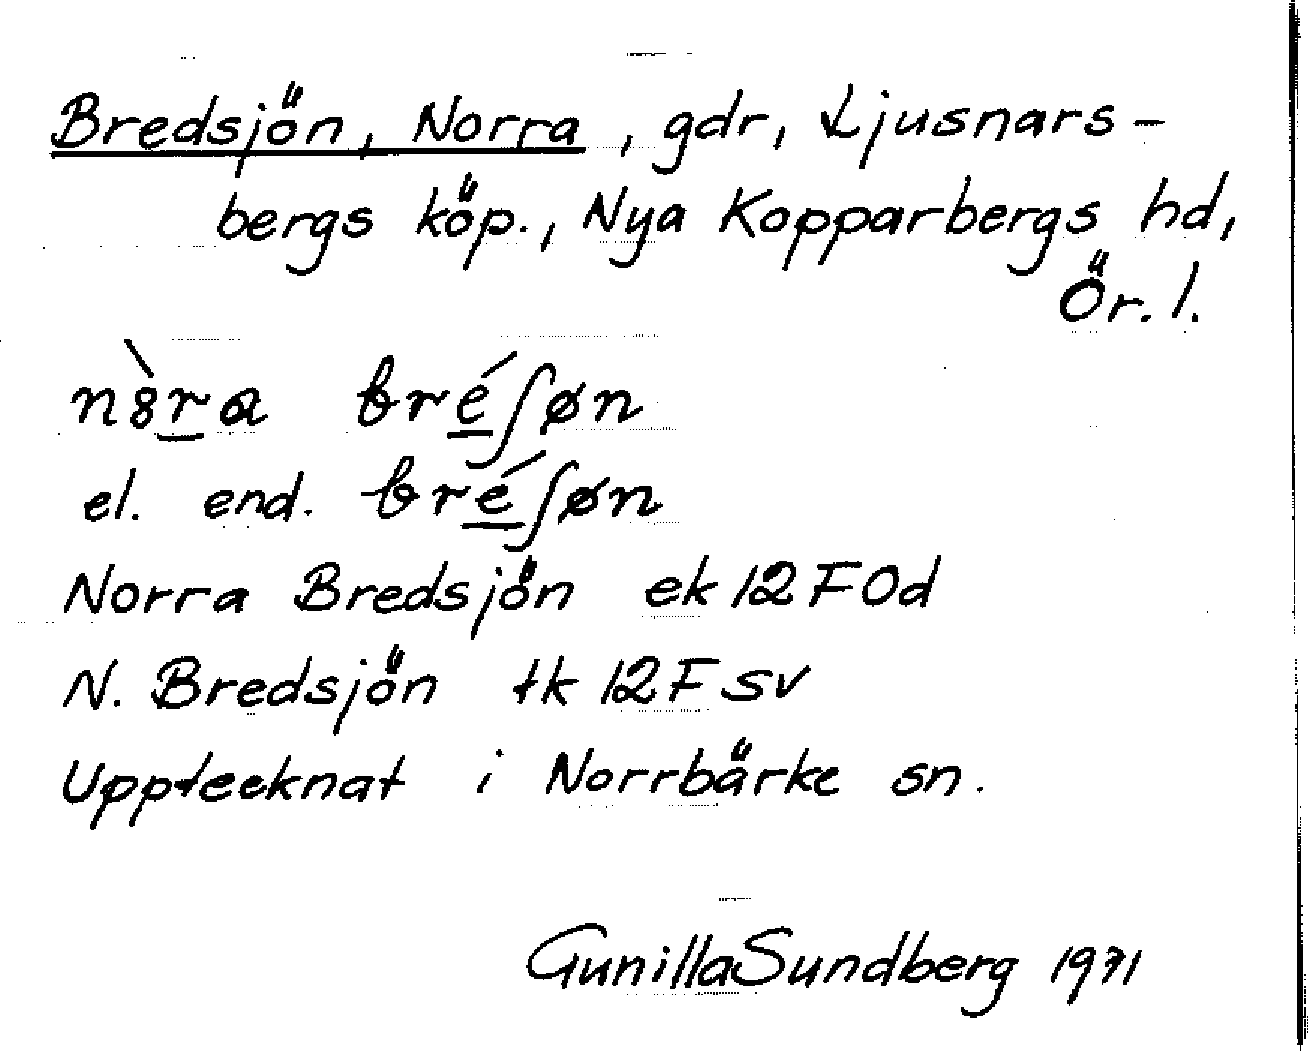 Bredsjön, Norra, gdr, Ljusnars-
bergs köp., Nya Kopparbergs hd,
Ör. l.
n8̀r̲a bré̲ʃøn
el. end. bré̲ʃøn
Norra Bredsjön ek 12F0d
N. Bredsjön tk 12F sv
Uppteeknat i Norrbärke sn.
Gunilla Sundberg 1971